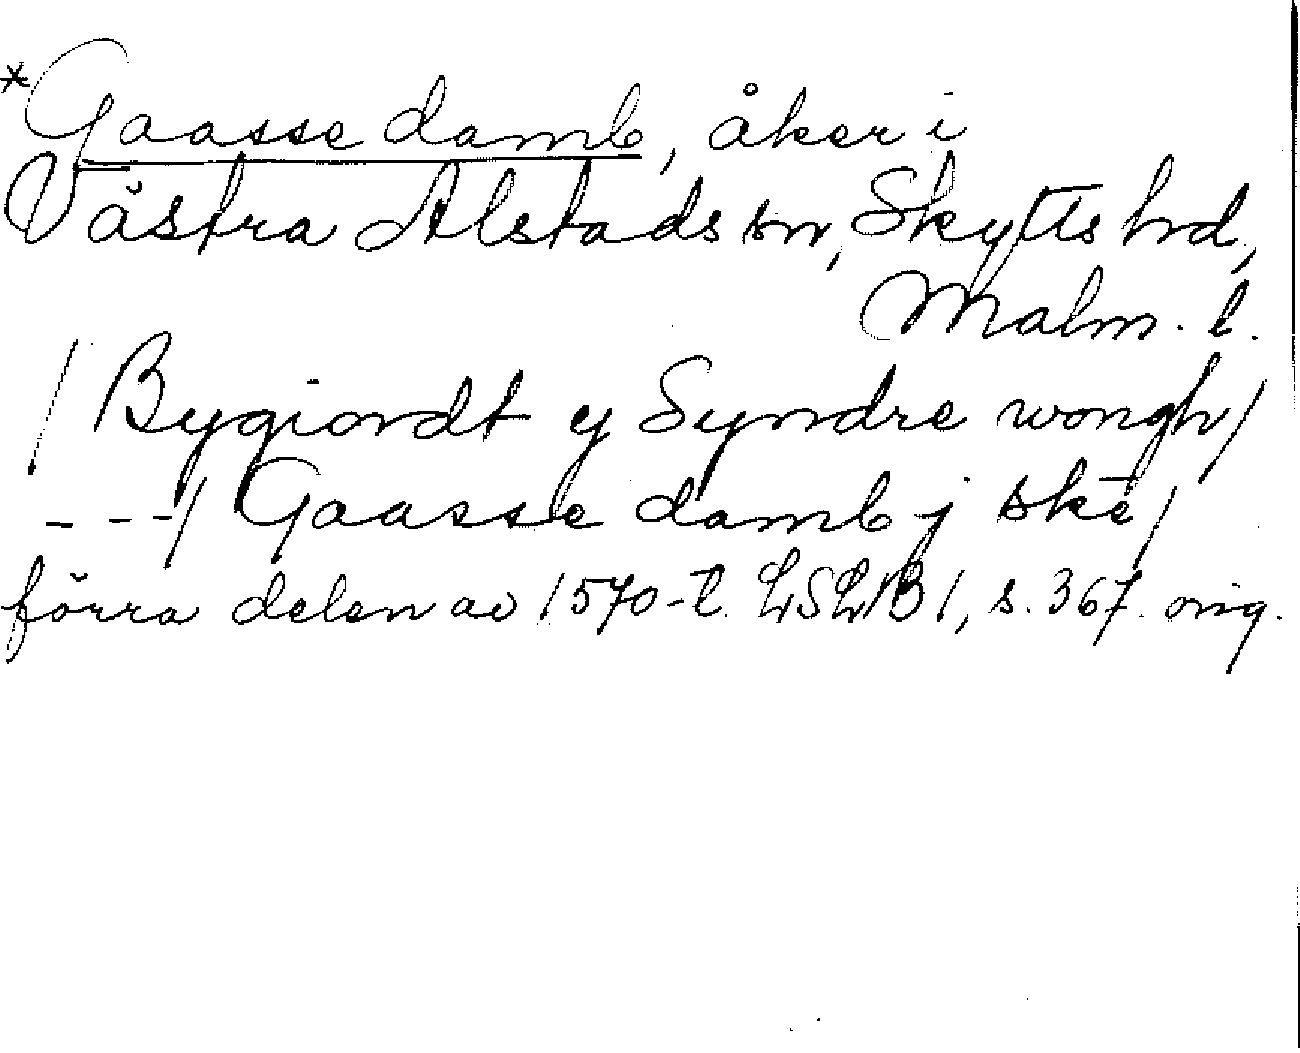 *Gaasse damb, åker i
Västra Alstads sn, Skytts hd,
Malm. l.
/ Bygiordt y Syndre wongh /
- - - / Gaasse damb j skē /
förra delen av 1570-t. LSLB 1, s. 367. orig.